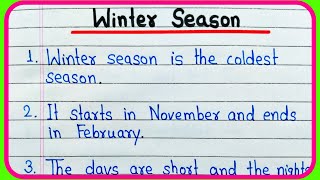 Winter Season
1. Winter season is the coldest
season.
2. It starts in November and ends
in February.
3. The days are short and the nights